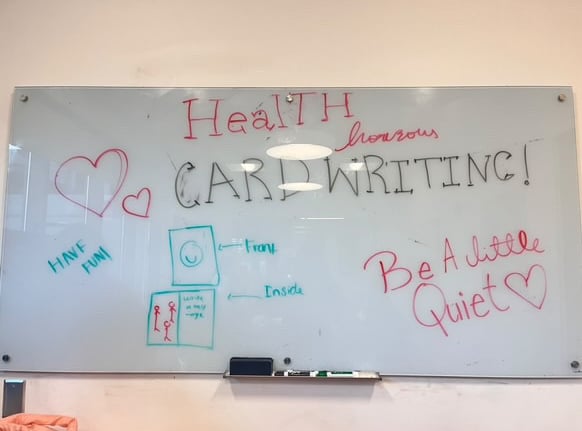 HealTH
honzous
CARD WRITING!
HAVE
FUN!
Front
Inside
write
a mess
-age
Be A little
Quiet